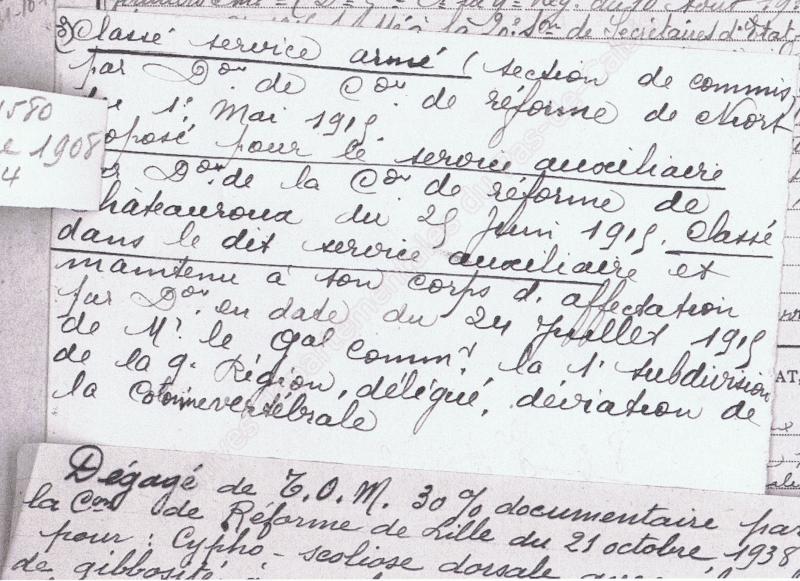 de Secrétaires d'Etat
3) Classé service armé (section de commis,
par D.on de C.on de réforme de Niort
1e Mai 1915
oposé pour le service auxiliaire
D.on de la C.on de réforme de
hâteauroux du 25 Juin 1915. Classé
dans le dit service auxiliaire et
maintenu à son corps d'affectation
par D.on en date du 24 Juillet 1915
de Mr. le Gal Comm.t la 1e subdivision
de la 9e Région, délégué, déviation de
la Colonne vertébrale
1580
1908
4
Dégagé de T.O.M. 30% documentaire par
la C.on de Réforme de Lille du 21 octobre 1938
pour : Cypho-scoliose dorsale
de gibbosité